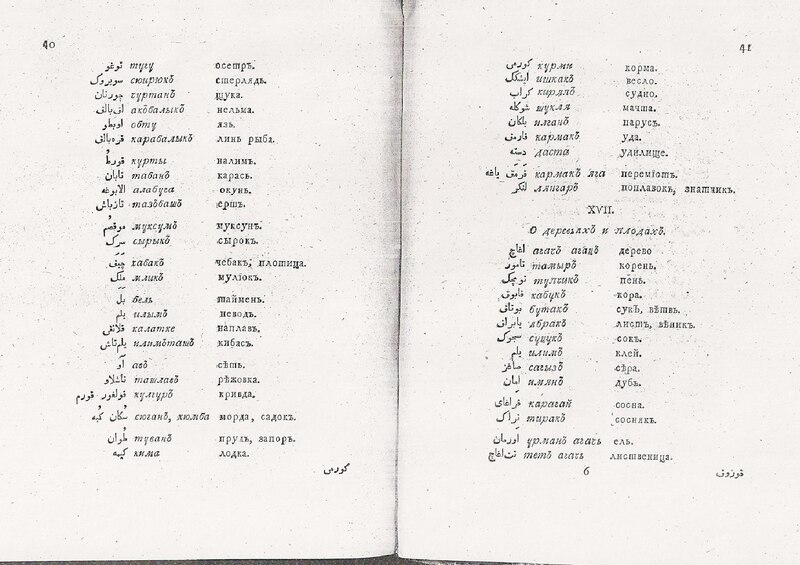 40
توغو тугу осетръ.
سويروك сюирюкъ стерлядь.
چورتان чуртанъ щука.
اق بالق акъбалыкъ нельма.
اوبطو обту язь.
قره بالق карабалыкъ линь рыба.
قورط курты налимъ.
تابان табанъ карась.
الابوغه алабуга окунь.
تازباش тазъбашъ ершъ.
موقصم муксумъ муксунъ.
سرك сырыкъ сырокъ.
хабакъ чебакъ, плотица.
ملك мликъ мулюкъ.
بل бель таймень.
يلم илымъ неводъ.
قلاتقى калатке наплавъ.
يلم تاش илимъташъ кибасъ.
آو авъ сѣть.
تاشلاو ташлавъ рѣжовка.
قولغور قورم кулгуръ кривда.
سكان كبه сюганъ, хюмба морда, садокъ.
طوان туванъ прудъ, запоръ.
كيمه кима лодка.
كورمى
41
كورمى курми корма.
ايشكك ишкакъ весло.
كراب киряпъ судно.
شوكله шукля мачта.
يلكان илганъ парусъ.
قارمق кармакъ уда.
دسته даста удилище.
قرمق ياغه кармакъ яга перемістъ.
لنكر лянгаръ поплавокъ, знатчикъ.
XVII.
О деревьяхъ и плодахъ.
اغاچ агачь агацъ дерево
تامور тамыръ корень,
тупчикъ пень.
قابوق кабукъ кора.
بوتاق бутакъ сукъ, вѣтвь.
يابراق ябракъ листъ, вѣникъ.
سجوك суцукъ сокъ.
يلم илимъ клей.
ساغز сагызъ сѣра.
ايمان имянъ дубъ.
قراغاى карагай сосна.
تراك тиракъ соснякъ.
اورمان урманъ агачь ель.
تت اغاچ тетъ агачь лиственица.
6 قوزوق